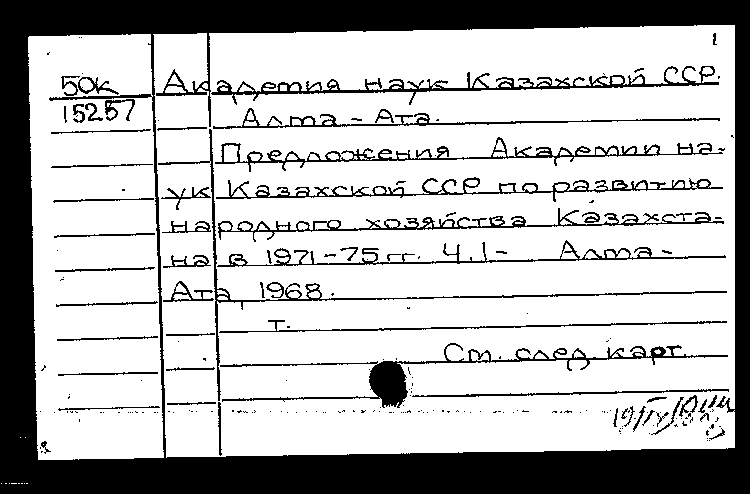 1
50к Академия наук Казахской ССР.
15257 Алма-Ата.
Предложения Академии на-
ук Казахской ССР по развитию
народного хозяйства Казахста-
на в 1971-75 гг. Ч.1- Алма-
Ата, 1968.
т.
См. след. карт.